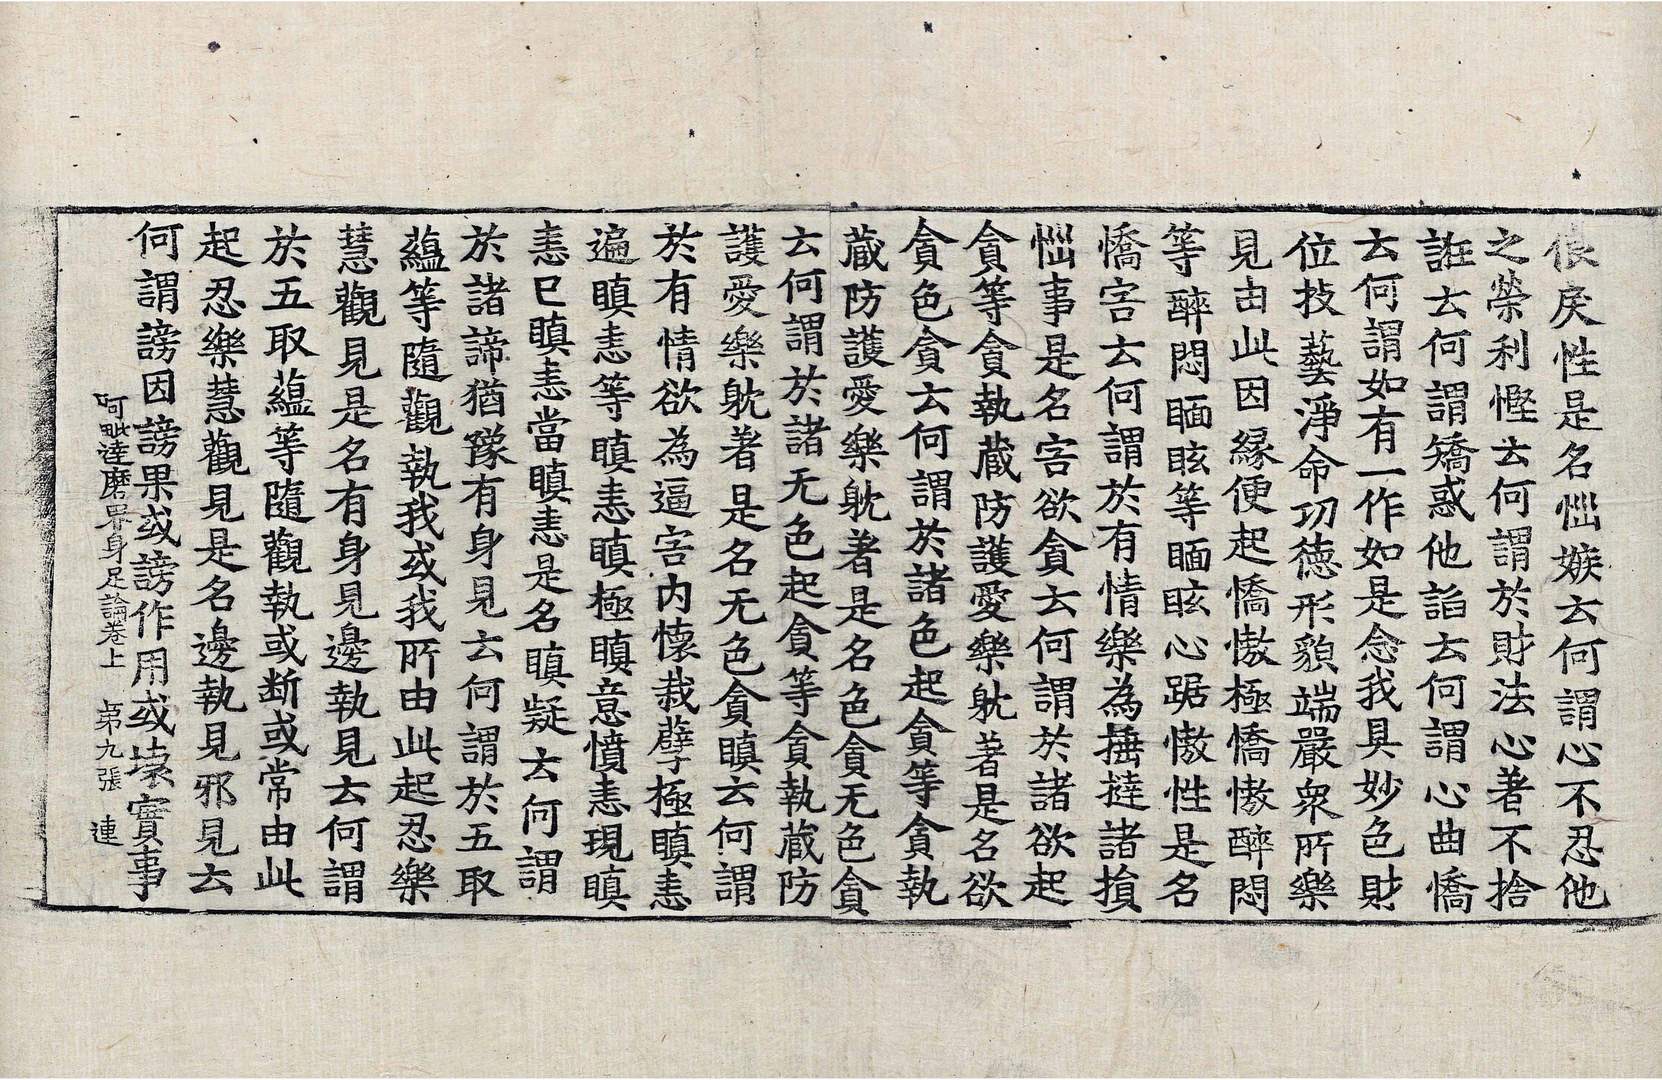 佷戾性是名惱嫉云何謂心不忍他
之榮利慳云何謂於財法心著不捨
誑云何謂矯惑他諂云何謂心曲憍
云何謂如有一作如是念我具妙色財
位技藝淨命功德形貌端嚴衆所樂
見由此因緣便起憍慠極憍慠醉悶
等醉悶眪眩等眪眩心踞慠性是名
憍害云何謂於有情樂為捶撻諸損
惱事是名害欲貪云何謂於諸欲起
貪等貪執藏防護愛樂躭著是名欲
貪色貪云何謂於諸色起貪等貪執
藏防護愛樂躭著是名色貪无色貪
云何謂於諸无色起貪等貪執藏防
護愛樂躭著是名无色貪瞋云何謂
於有情欲為逼害内懷栽孽極瞋恚
遍瞋恚等瞋恚瞋極瞋意憤恚現瞋
恚已瞋恚當瞋恚是名瞋疑云何謂
於諸諦猶豫有身見云何謂於五取
蘊等隨觀執我或我所由此起忍樂
慧觀見是名有身見邊執見云何謂
於五取蘊等隨觀執或断或常由此
起忍樂慧觀見是名邊執見邪見云
何謂謗因謗果或謗作用或壞實事
阿毗達磨界身足論卷上 第九張 連